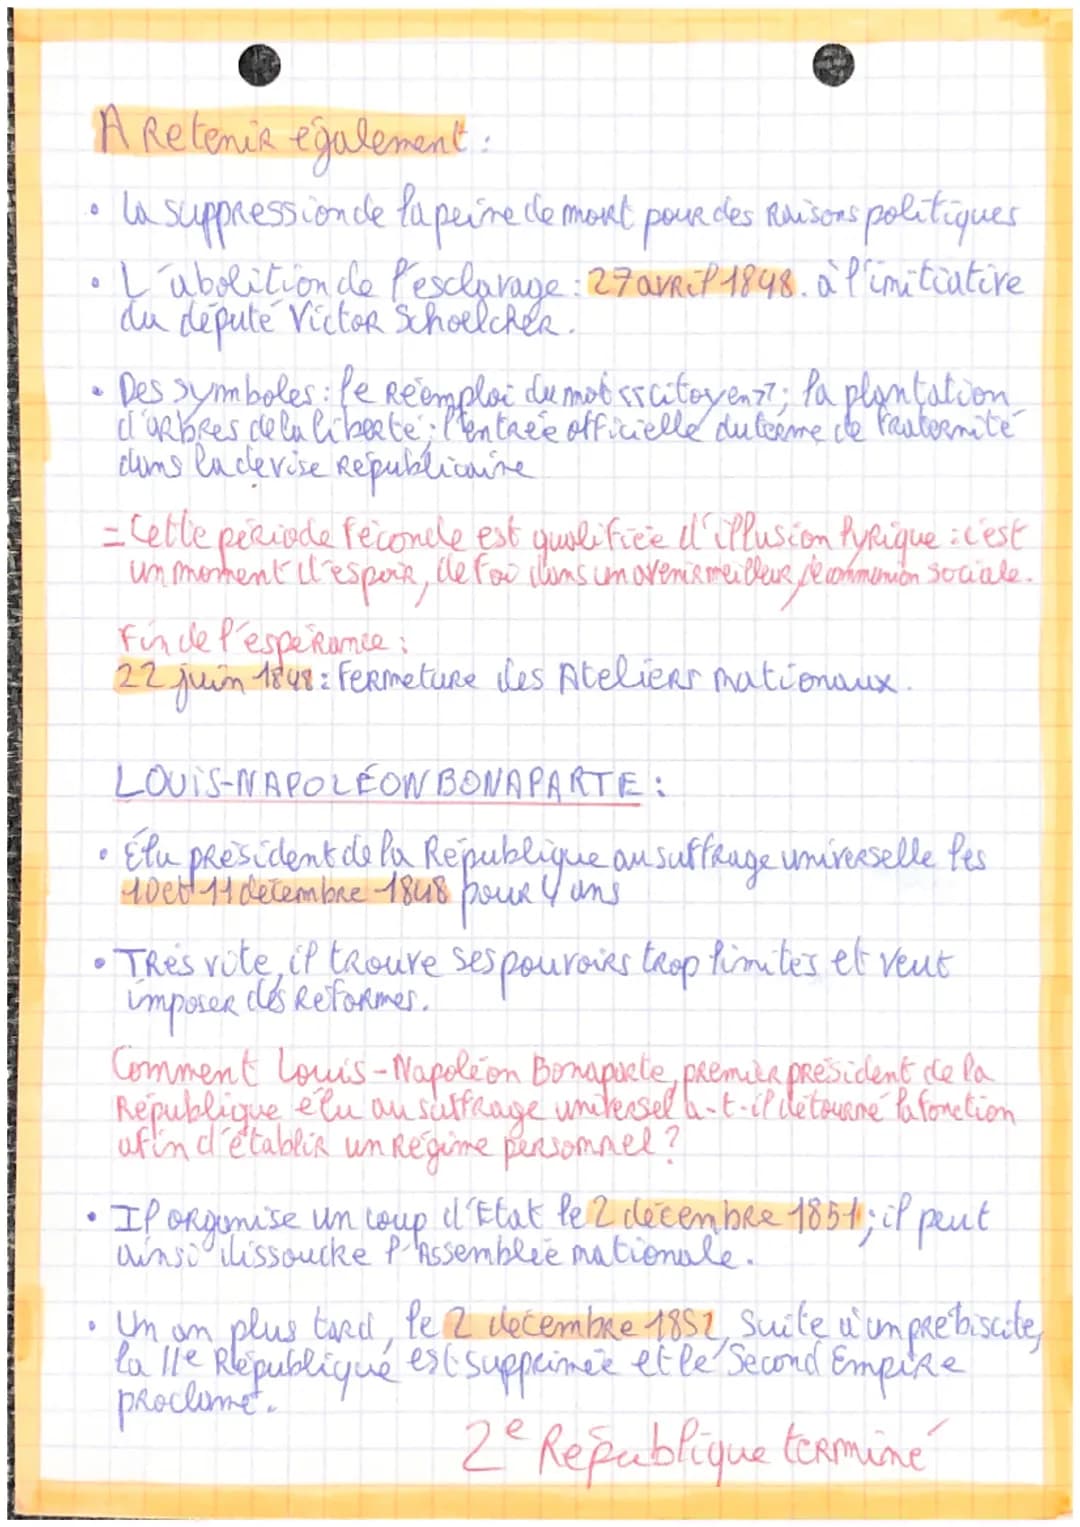 A Retenir également :
• La suppression de la peine de mort pour des Raisons politiques
• L'abolition de l'esclavage : 27 avril 1848. à l'initiative
du député Victor Schoelcher.
• Des symboles : le Réemploi du mot «citoyen»; la plantation
d'arbres de la liberté ; l'entrée officielle du terme de fraternité
dans la devise Républicaine
= Cette période féconde est qualifiée d'illusion lyrique : c'est
un moment d'espoir, de foi dans un avenir meilleur, de communion sociale.
Fin de l'espérance :
22 juin 1848 : Fermeture des Ateliers nationaux.
LOUIS-NAPOLÉON BONAPARTE :
• Élu président de la République au suffrage universelle les
10 et 11 décembre 1848 pour 4 ans
• Très vite, il trouve ses pouvoirs trop limités et veut
imposer des Réformes.
Comment Louis-Napoléon Bonaparte, premier président de la
République élu au suffrage universel a-t-il détourné la fonction
afin d'établir un Régime personnel ?
• Il organise un coup d'Etat le 2 décembre 1851 ; il peut
ainsi dissoucke l'Assemblée nationale.
• Un an plus tard, le 2 décembre 1852, suite à un prébiscite,
la IIe République est supprimée et le Second Empire
proclamé.
2e République terminé